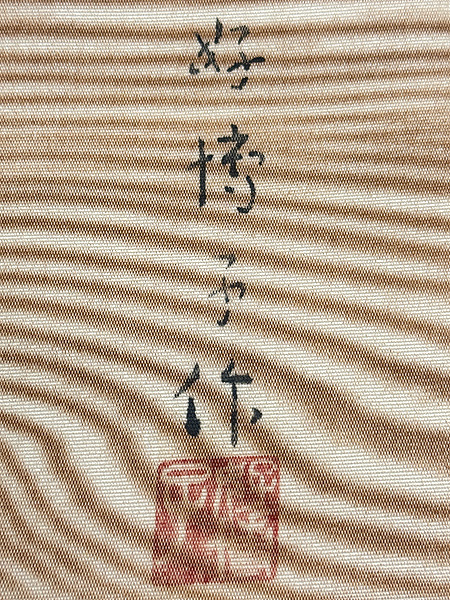 好博子作